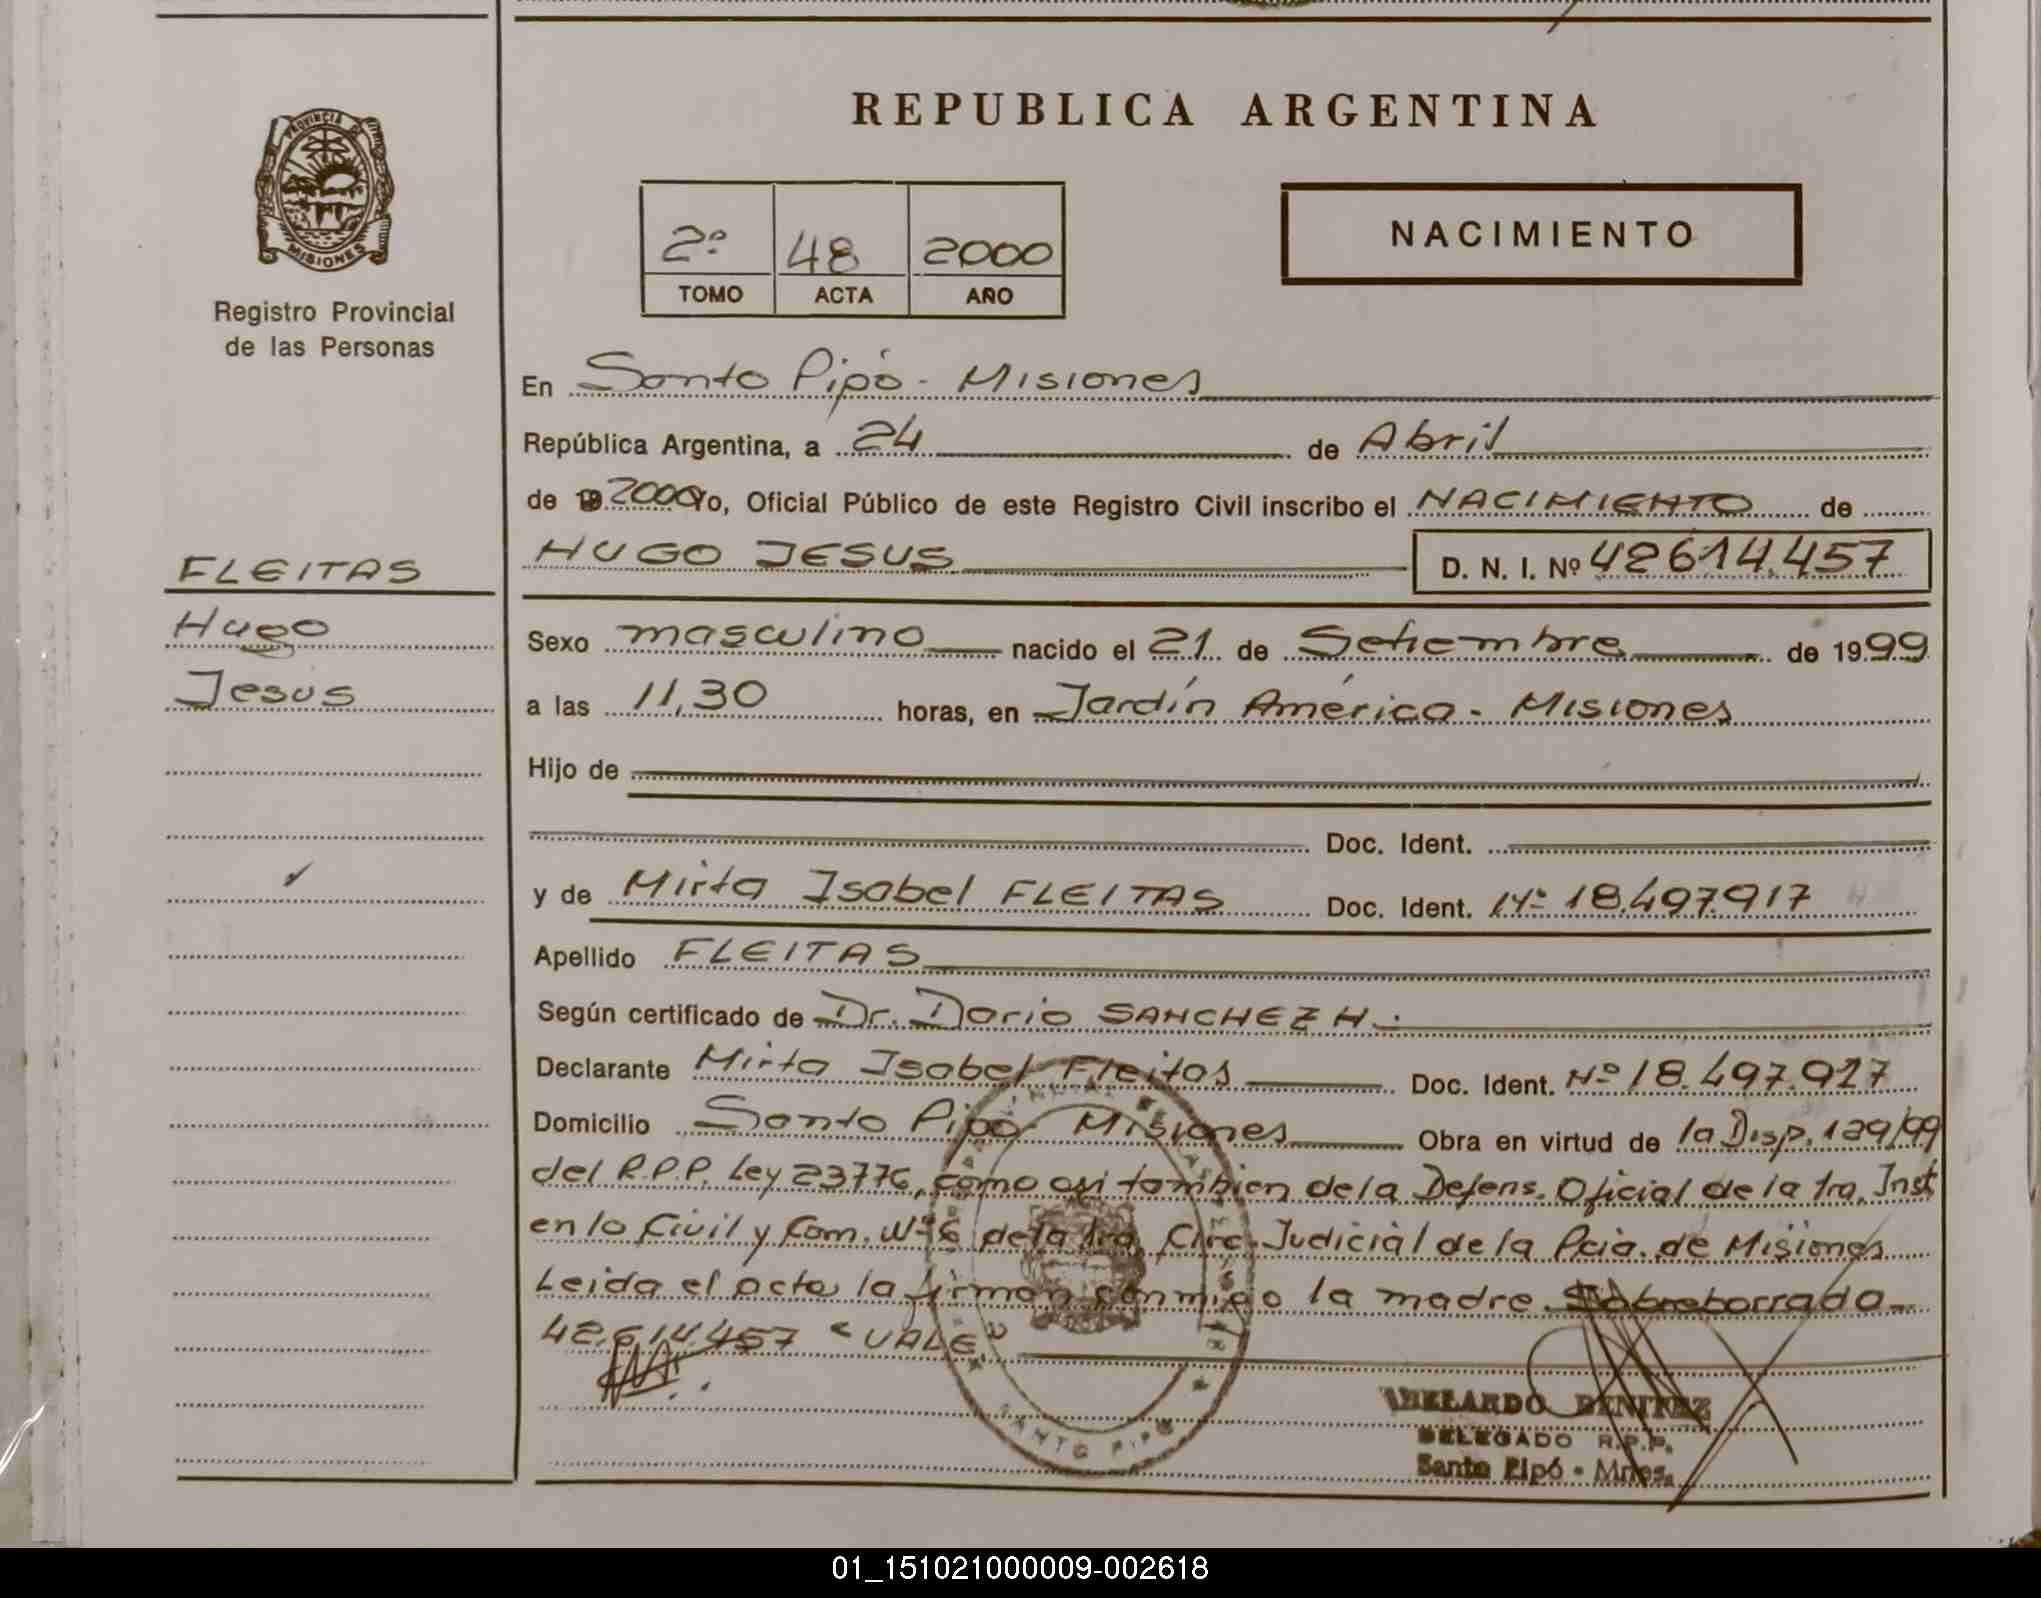 PROVINCIA DE
MISIONES
Registro Provincial
de las Personas
FLEITAS
Hugo
Jesus
REPUBLICA ARGENTINA
2º 48 2000
TOMO ACTA AÑO
NACIMIENTO
En Santo Pipó - Misiones
República Argentina, a 24 de Abril
de 19 2000 Yo, Oficial Público de este Registro Civil inscribo el NACIMIENTO de
HUGO JESUS D. N. I. Nº 42614.457
Sexo masculino nacido el 21 de Setiembre de 1999
a las 11,30 horas, en Jardín América - Misiones
Hijo de
Doc. Ident.
y de Mirta Isabel FLEITAS Doc. Ident. Nº 18.497.917
Apellido FLEITAS
Según certificado de Dr. Dario SANCHEZ H.
Declarante Mirta Isabel Fleitas Doc. Ident. Nº 18.497.927
Domicilio Santo Pipó - Misiones Obra en virtud de la Disp. 129/99
del R.P.P. Ley 23776, como asi tambien de la Defens. Oficial de la 1ra. Inst
en lo Civil y Com. Nº 6 de la 1ra. Circ. Judicial de la Pcia. de Misiones
Leida el acta la firman conmigo la madre. Sobreborrado
42.614.457 "VALE"
SANTO PIPO
ABELARDO BENITEZ
DELEGADO R.P.P.
Santo Pipó - Mnes.
01_151021000009-002618